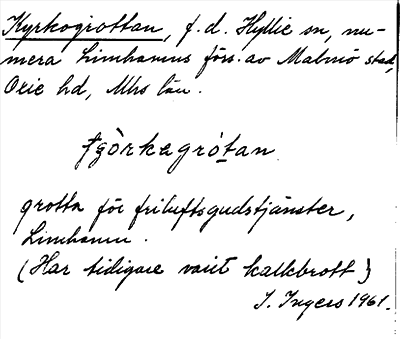 Kyrkogrottan, f. d. Hyllie sn, nu-
mera Limhamns förs. av Malmö stad,
Oxie hd, Mhs län.
grotta för friluftsgudstjänster,
Limhamn.
(Har tidigare varit kalkbrott)
I. Ingers 1961.